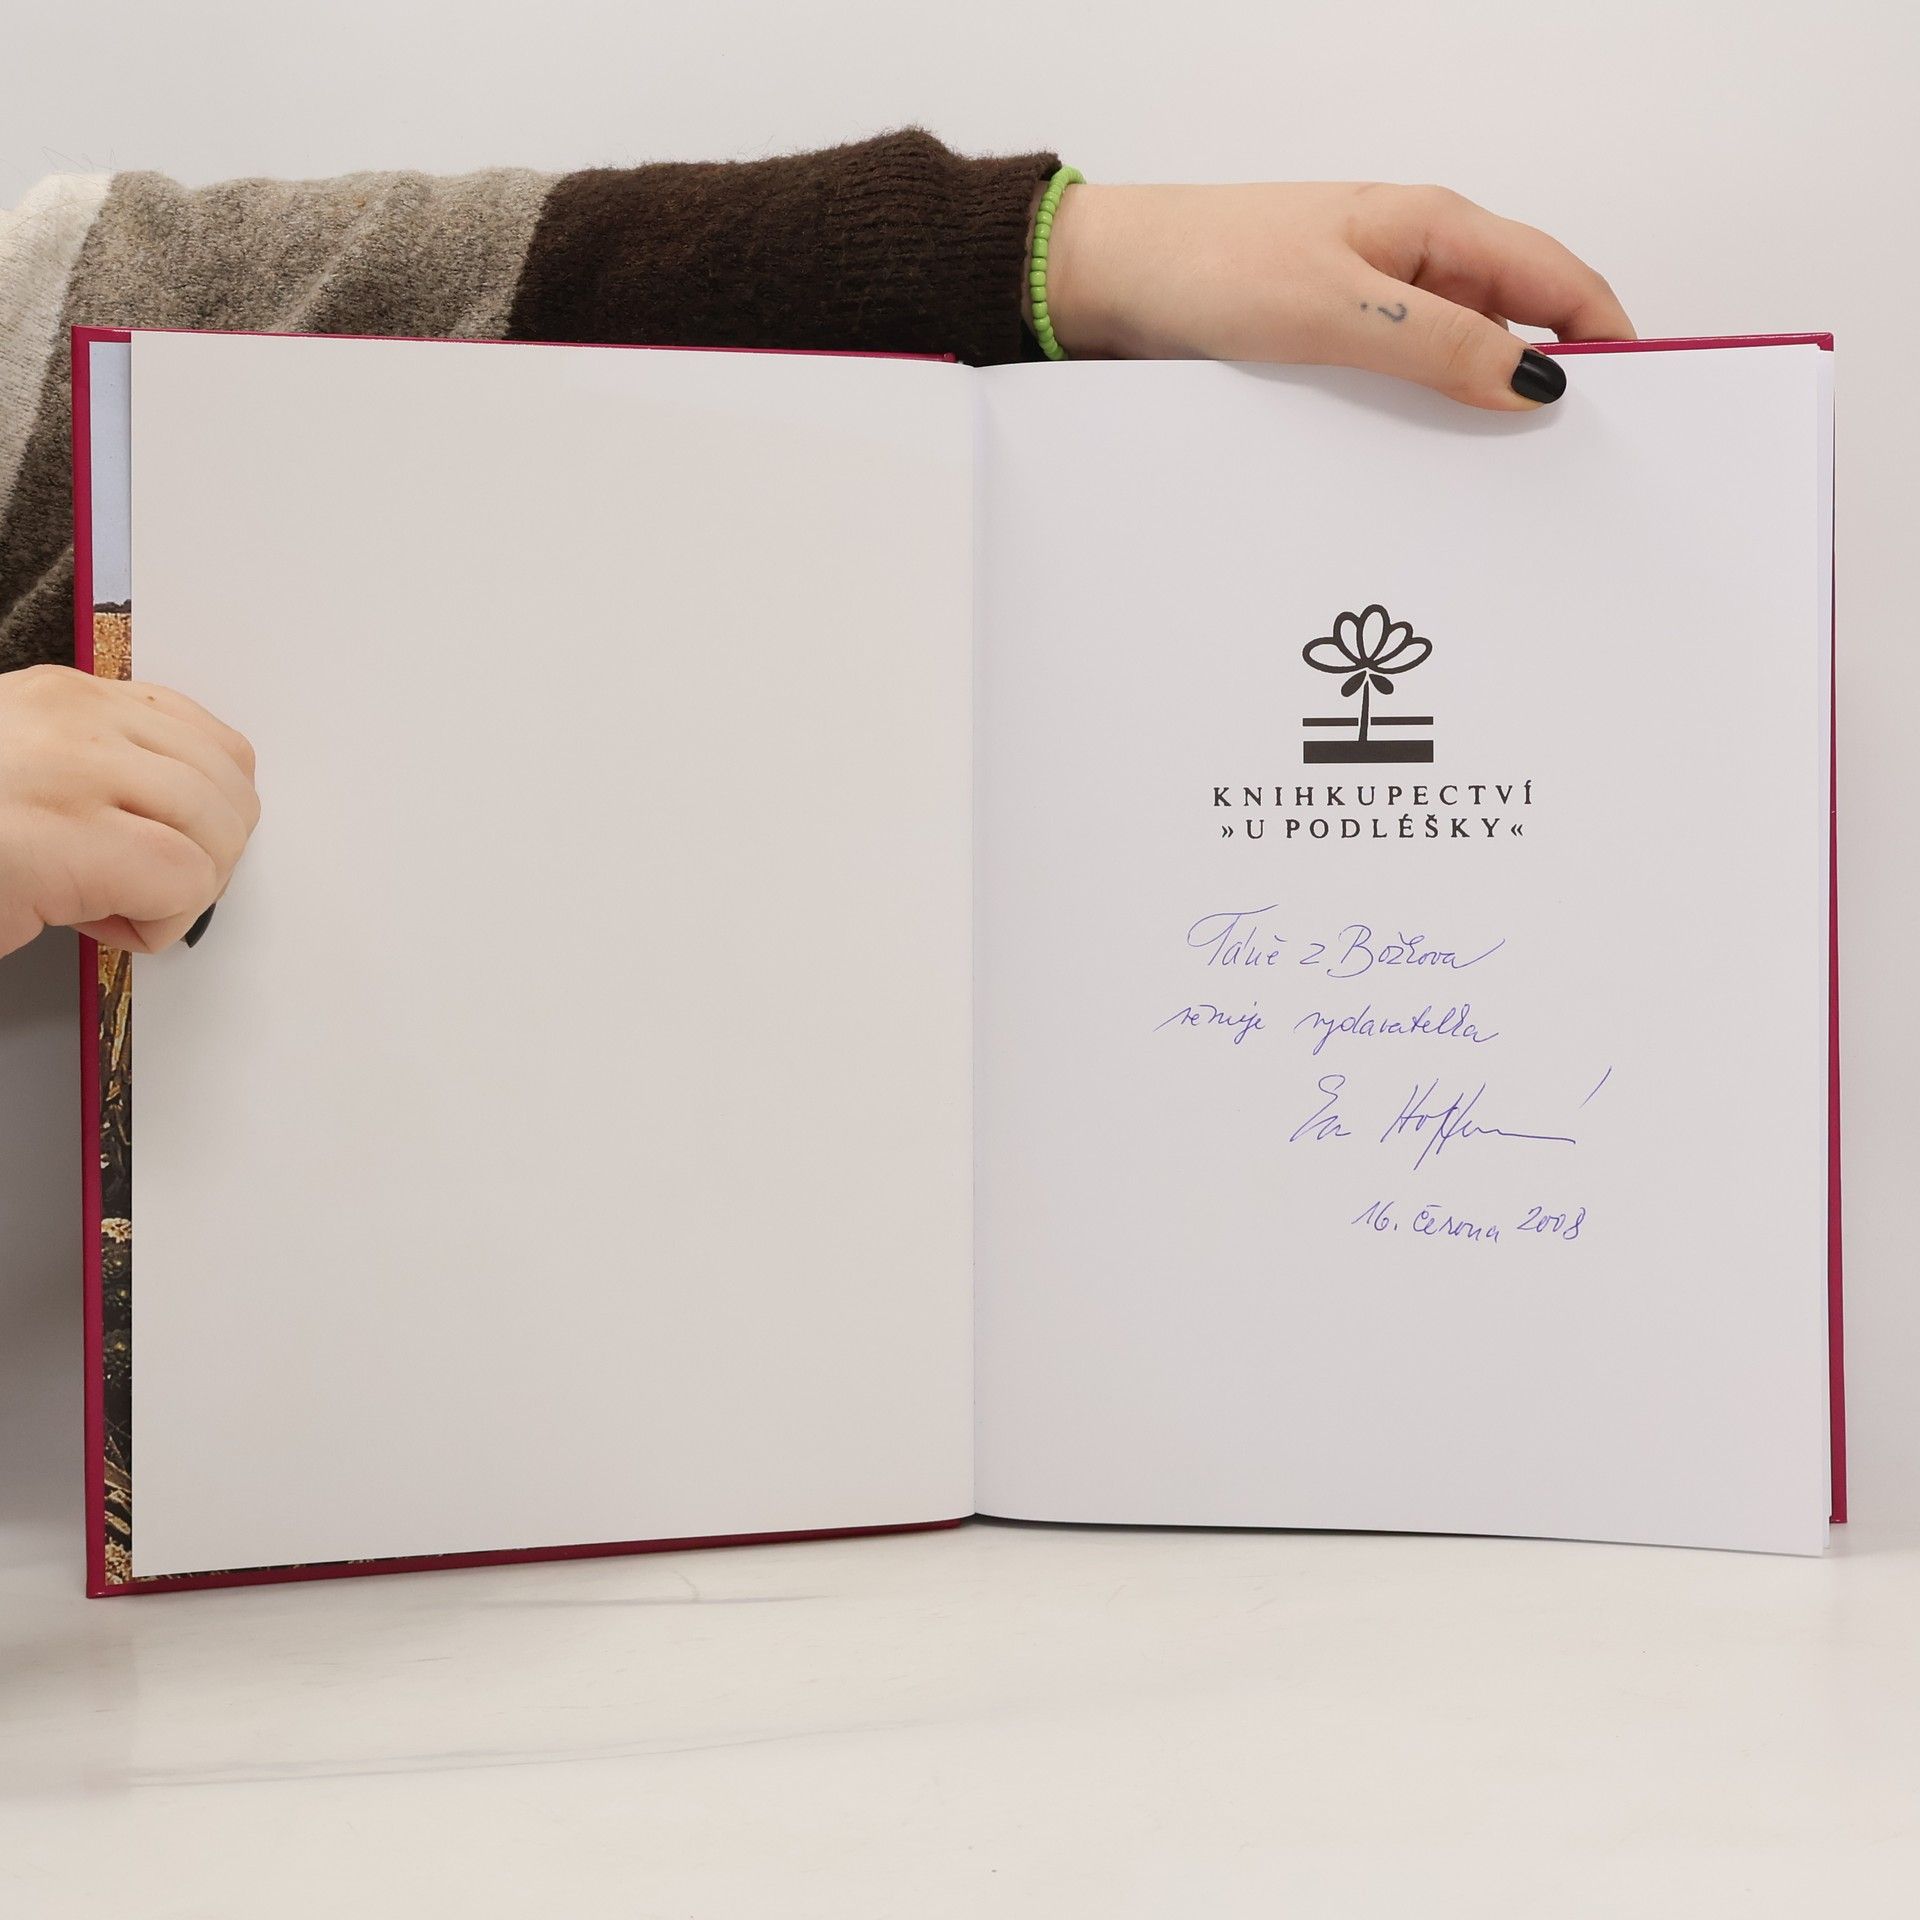 KNIHKUPECTVÍ
»U PODLÉŠKY«
Táně z Božkova
věnuje vydavatelka
Eva Hoffmanová
16. června 2008
?